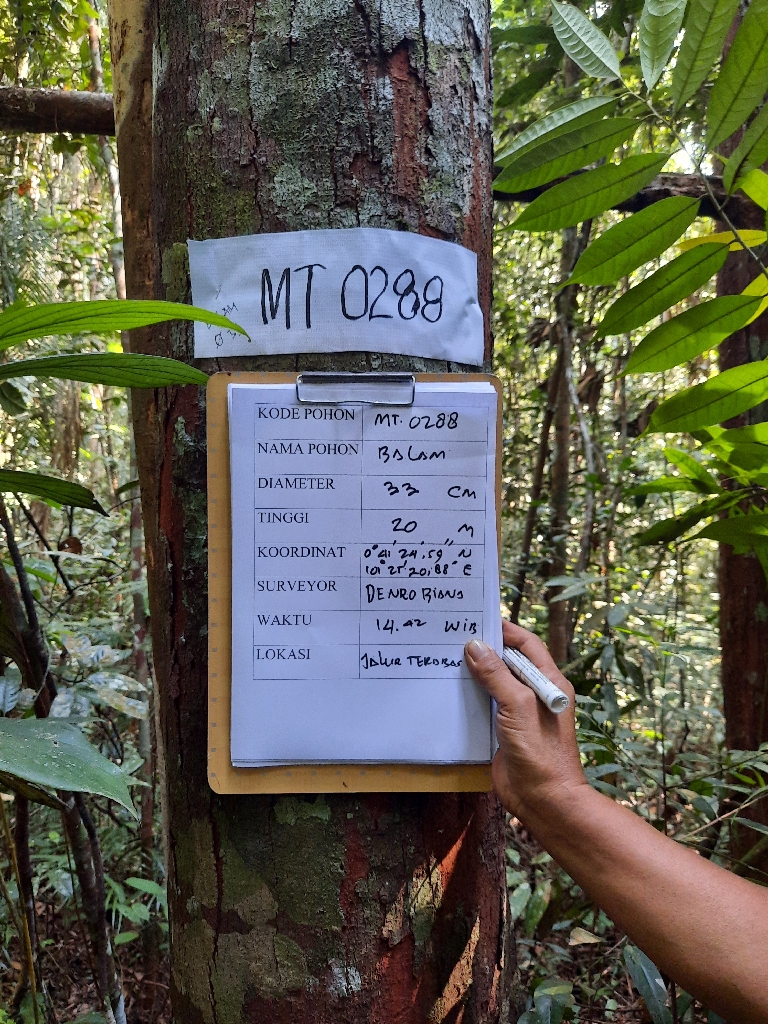 MT 0288
KODE POHON MT. 0288
NAMA POHON BALAM
DIAMETER 33 CM
TINGGI 20 M
KOORDINAT 0°41'24,59" N
101°21'20,88" E
SURVEYOR
WAKTU 14.42 WIB
LOKASI JALUR TEROBOS